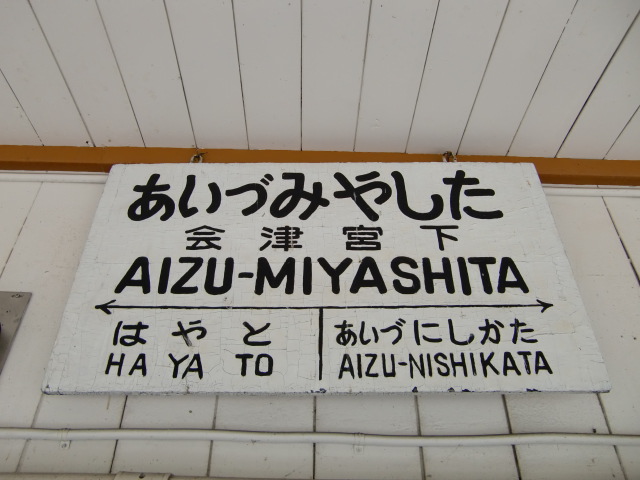 あいづみやした
会津宮下
AIZU-MIYASHITA
はやと
HAYATO
あいづにしかた
AIZU-NISHIKATA